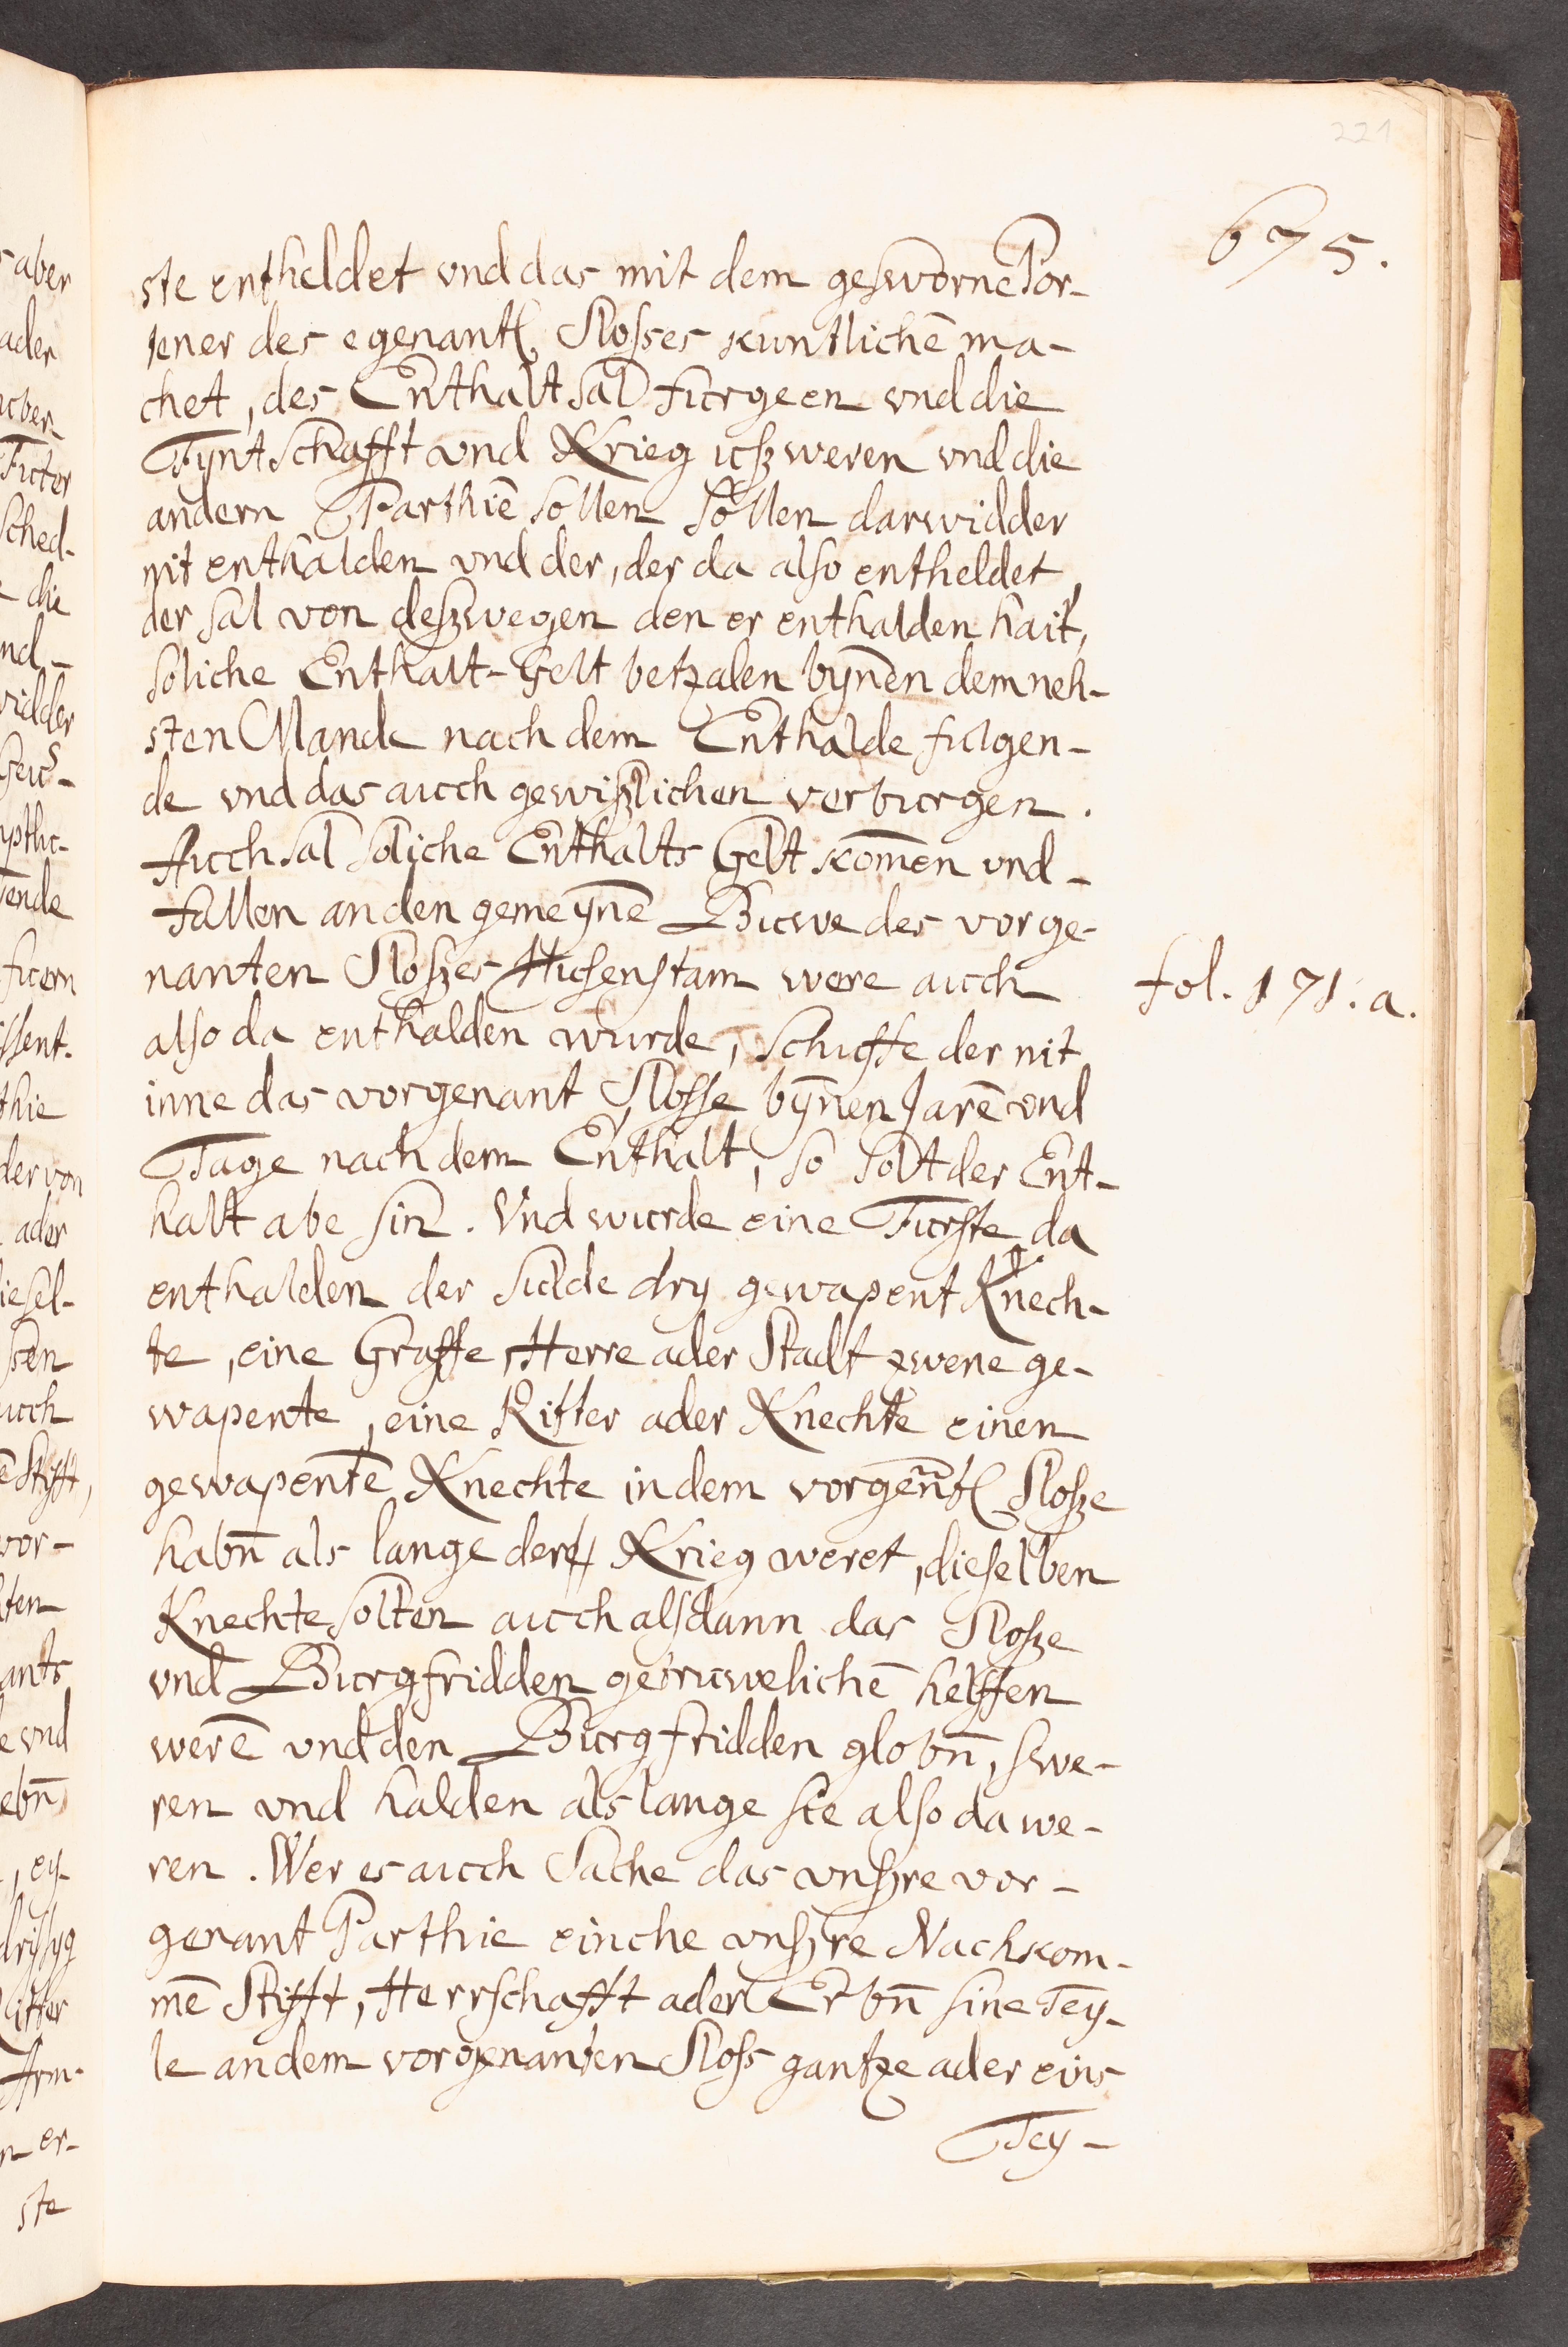 221
675.
ste entheldet vnd das mit dem geswornē Por-
tener des egenantſ. Sloſses kuntlichē ma-
chet, des Enthalt sal furgeen vnd die
Fyntschafft vnd Krieg uſzweren vnd die
andern Parthiē sollen sollen darwidder
nit enthalden vnd der, der da also entheldet
der sal von deſzwegen den er enthalden hait,
soliche Enthalt-Gelt betzalen bynnen dem neh-
sten Mande nach dem Enthalde fulgen-
de vnd das auch gewiſzlichen verburgen.
Auch sal soliche Enthalts Gelt komēn vnd-
fallen an den gemeynē Buwe des vorge-
nanten Sloſzes Husenstam were auch
fol. 171. a.
also da enthalden wurde, schuffe der nit
inne das vorgenant Sloſse byn̄en Jarē vnd
Tage nach dem Enthalt, so solt der Ent-
halt abe sin. Vnd wurde eine Furste da
enthalden der sulde dry gewapent Knech-
te, eine Graffe, Herre ader Stadt zwene ge-
wapente, eine Ritter ader Knechte einen
gewapentē Knechte in dem vorgen̄tſ Sloſze
habn̄ als lange der Krieg weret, dieselben
Knechte solten auch alsdann das Sloſze
vnd Burgfridden getruwelichē helffen
werē vnd den Burgfridden globn̄, swe-
ren vnd halden als lange sie also da we-
ren. Wer es auch Sache das vnſzre vor-
genant Parthie einche vnſzre Nachkom-
mē Stifft, Herrschafft ader Erbn̄ sine Tey-
le an dem vorgenanten Sloſs gantze ader eins
Tey-